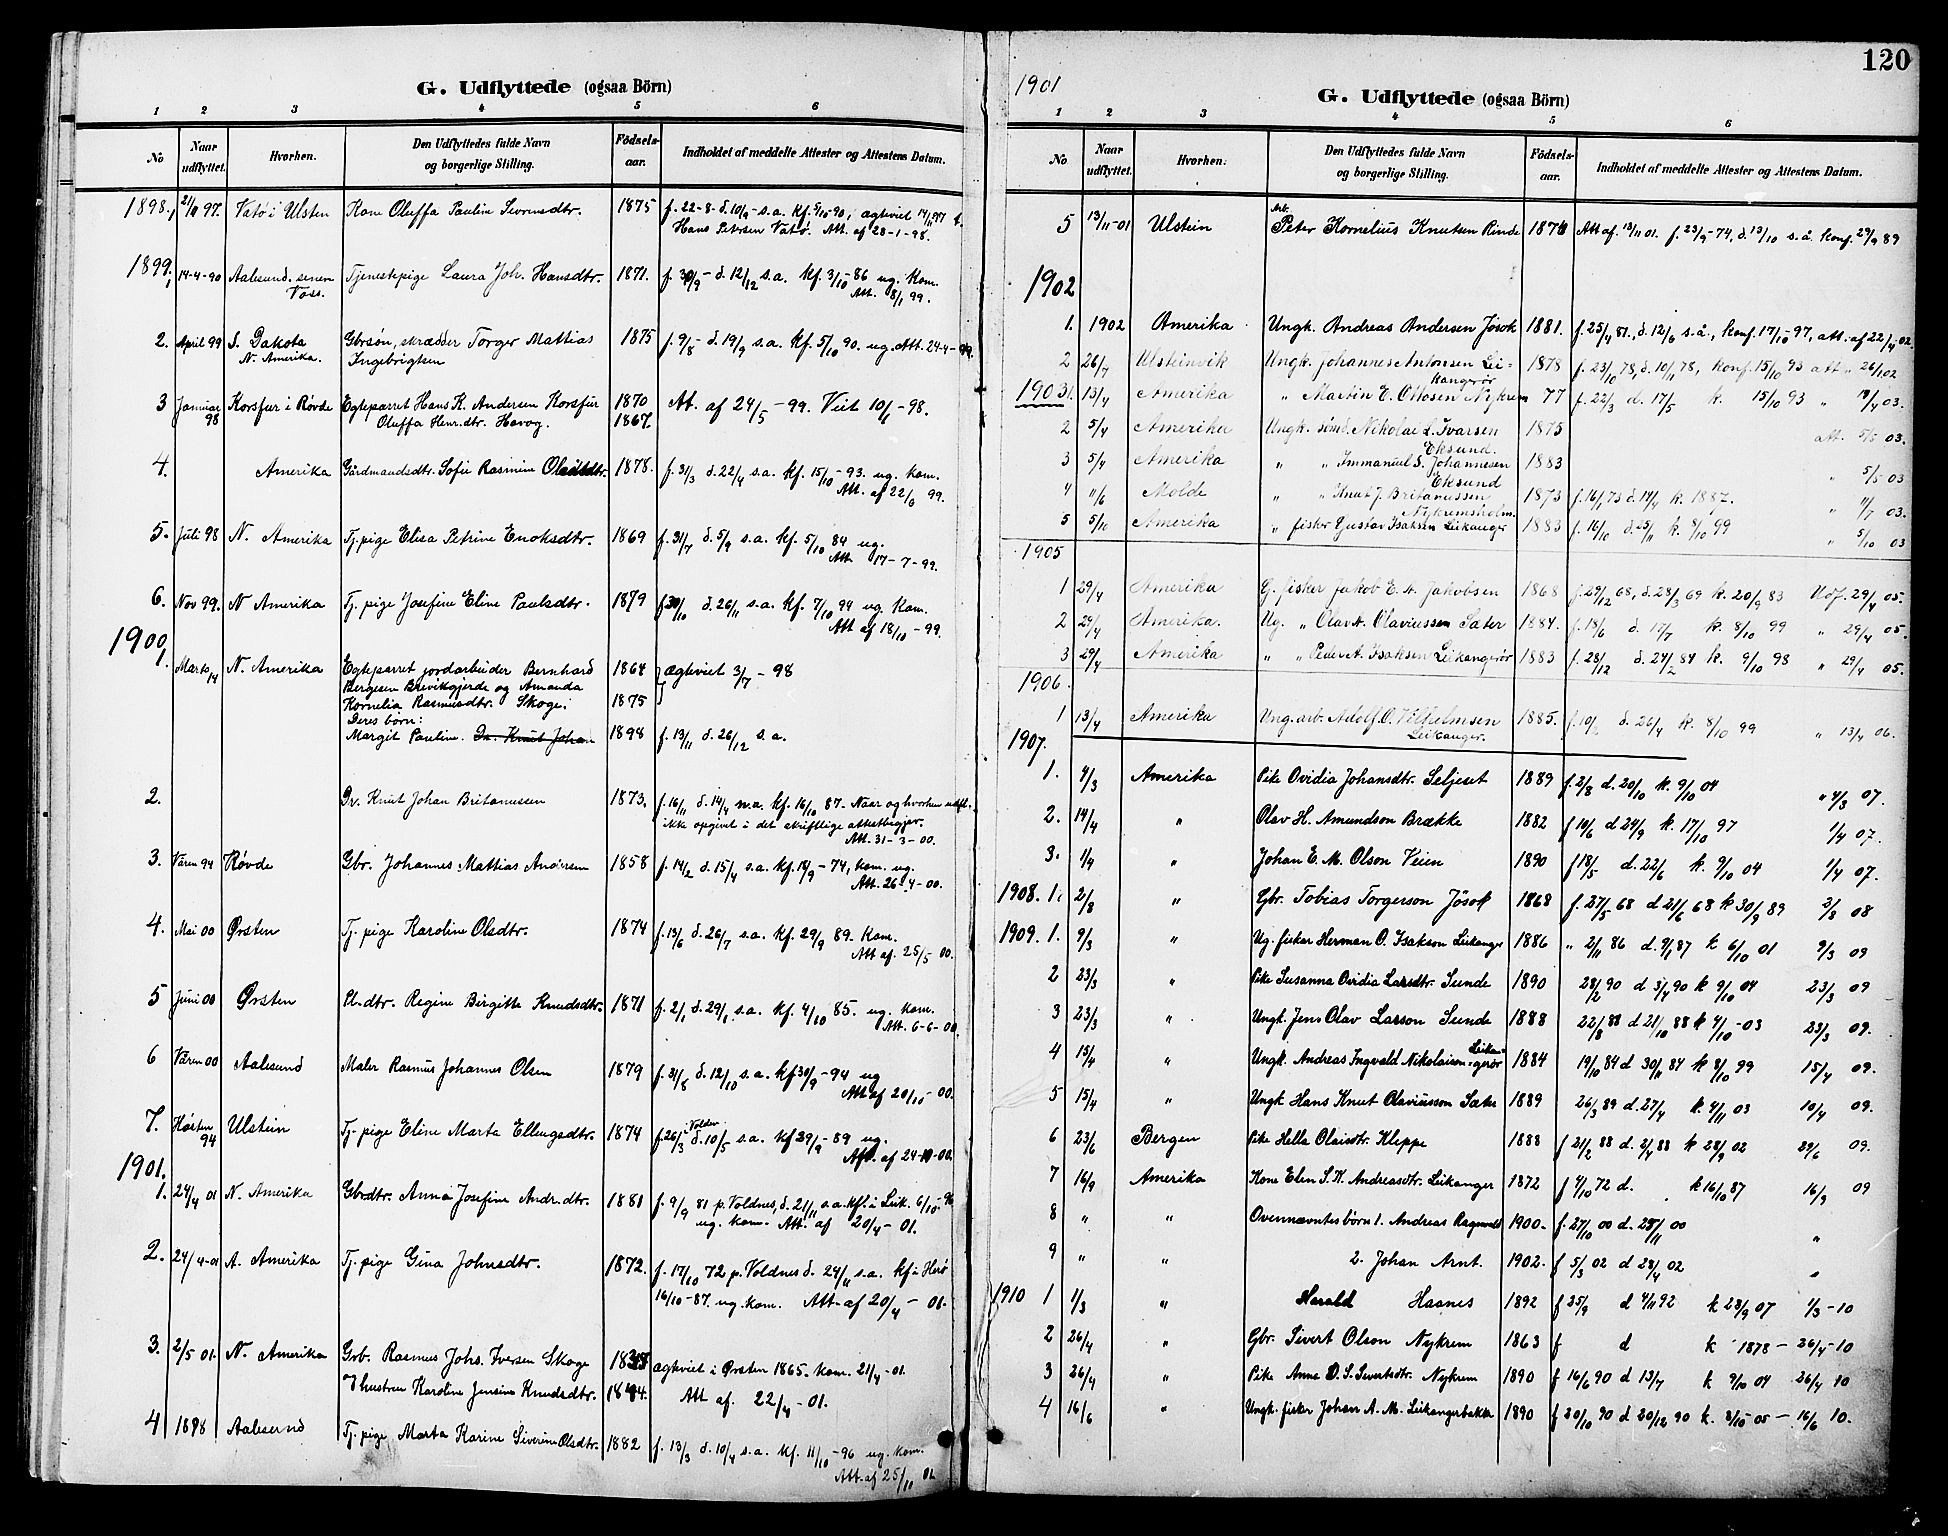 G. Udflyttede (ogsaa Börn)
1 2 3 4 5 6
No Naar udflyttet. Hvorhen. Den Udflyttedes fulde Navn og borgerlige Stilling. Födsels-aar. Indholdet af meddelte Attester og Attestens Datum.
1898, 97. Vatö i Ulsten Kone Oluffa Pauline Severinsdtr. 1875 f. 22-8- d. 10/9- s.a. kf. 5/10-90, ägtviet
Hans Petersen Vatö. Att. af 28-1-98.
1899, 14-4-90 Aalesund. senere Voss. Tjenestepige Laura Joh. Hansdtr. 1871. f. 30/9- d. 12/12 s.a. kf. 3/10-86 ug. Kom.
Att. 8/1 99.
2. April 99 S. Dakota Gbrsøn, skrædder Torger Mattias 1875 f. 9/8- d. 19/9 s.a. kf. 5/10 90. ug. Att. 24-4-99.
N. Amerika. Ingebrigtsen
3 Januar 98 Korsfur i Røvde Egteparret Hans K. Andersen Korsfur 1870 At. af 24/5-99. Viet 10/1-98.
Oluffa Henr.dtr. Havåg. 1867.
4. Amerika Gårdmandsdtr. Sofie Rasmine Olsdtr. 1878. f. 31/3 d. 22/4 s.a. kf. 15/10-93. ug. kom.
Att. af 22/6 99.
5. Juli 98 N. Amerika Tj. pige Elisa Petrine Enoksdtr. 1869 f. 31/7 d. 5/9 s.a. kf. 5/10 84 ug.
Att. 17-7-99.
6. Nov 99. N Amerika Tj. pige Josefine Eline Paulsdtr. 1879 f 30/10 d. 26/11 s.a. kf. 7/10 94 ug. Kom.
Att af 18/10-99.
1900,
1. Marts 14 N. Amerika Egteparret jordarbeider Bernhard 1864 ägtviet 3/7-98
Bergesen Brevikgjerde og Amanda
Kornelia Rasmusdtr. Skoge; 1875
Deres börn:
Margit Pauline. Dr. Knut Johan 1898 f. 13/11 d. 26/12 s.a.
2. Dr. Knut Johan Britanussen 1873. f. 16/11 d. 14/4 n.a. kf. 16/10 87- Naar og hvorhen udfl.
ikke opgivet i det skriftlige attestbegjær.
Att. 31-3-00.
3. Våren 94 Røvde Gbr. Johannes Mattias Andersen 1858 f. 14/2 d. 15/4 s.a. kf. 14/9-74, kom. ug.
Att. 26-4-00.
4. Mai 00 Ørsten Tj. pige Karoline Olsdtr. 1874 f. 13/6 d. 26/7 s.a. kf. 29/9 89. Kom.
Att af. 25/5 00.
5 Juni 00 Ørsten Pl.dtr. Regine Birgitte Knudsdtr. 1871 f. 2/1 d. 29/1 s.a. kf. 4/10 85. ug. kom.
Att. 6-6-00.
6 Våren 00 Aalesund Maler Rasmus Johannes Olsen 1879 f. 31/8 d. 12/10 s.a. kf 30/9-94 ug
Att af 20/10-00.
7. Høsten 94 Ulstein Tj. pige Eline Marta Ellingsdtr. 1874 f. 26/3 i Volden d. 10/5 s.a. kf 29/9-89 ug.
Att. af 24-10-00.
1901.
1. 24/4 01 N. Amerika Gbrdtr. Anna Josefine Andr.dtr. 1881 f. 9/9 81 p. Voldnes, d. 21/11 s.a. kf. i Leik. 6/10-96
ug. kom. Att. af 20/4-01.
2. 24/4-01 A. Amerika Tj. pige Gina Johnsdtr. 1872. f. 17/10 72 p. Voldnes d. 24/11 s.a. kf i Herö
16/10-87. ug. kom. Att. af 20/4-01.
3. 2/5 01. N. Amerika Grb. Rasmus Johs. Iversen Skoge ägtviet i Ørsten 1865. kom. 21/4-01.
Hustru Karoline Jensine Knudsdtr. 1844. Att af. 22/4-01.
4 1898 Aalesund Tj. pige Marta Karine Siverine Olsdtr. 1882 f. 13/3 d. 10/4 s.a. kf. 11/10-96 ug. kom.
Att. af 25/10 01.
120
1901
G. Udflyttede (ogsaa Börn)
1 2 3 4 5 6
No Naar udflyttet. Hvorhen. Den Udflyttedes fulde Navn og borgerlige Stilling. Födsels-aar. Indholdet af meddelte Attester og Attestens Datum.
5 13/11-01 Ulstein Arb. Peter Kornelius Knutsen Rinde 1874 Att af. 13/11 01. f. 23/9-74, d. 13/10 s.å. konf. 29/9 89
1902
1. 1902 Amerika Ungk. Andreas Andersen Jösok 1881. f. 25/4 81. d. 12/6 s.å., konf. 17/10-97, att. af 22/4 02.
2 26/7 Ulsteinvik Ungk. Johannes Antonsen Lei- 1878 f. 23/10 78, d. 10/11 78, konf. 15/10 93 att " 26/1 02
kangerör
1903 1. 13/4 Amerika " Martin E. Ottosen Nykrem 77 f. 22/3 d. 17/5 k. 15/10 93 " 13/4 03.
2 5/4 Amerika Ungk. sömd. Nikolai L. Ivarsen 1875 att. 5/5 03.
Eksund.
3 5/4 Amerika " " Immanuel S. Johannesen 1883 " 5/5 03
Eksund
4 11/6 Molde " " Knut J. Britanussen 1873 f. 16/1 73 d. 14/4 k. 1887. " 11/7 03.
Nykremsholm.
5 5/10 Amerika " fisker Gustav Isaksen Leikanger 1883 f. 16/10 d. 25/11 k. 8/10 99 " 5/10 03
1905
1 29/4 Amerika G. fisker Jakob E. A. Jakobsen 1868 f. 29/12 68, d. 28/3 69 k. 20/9 83 Udf. 29/4 05.
2 29/4 Amerika. Ug. " Olav A. Olaviussen Sæter 1884. f. 18/6 d. 17/7 k. 8/10 99 " 29/4 05.
3 29/4 Amerika " " Peder A. Isaksen Leikangerör 1883 f. 28/12 d. 24/2 84 k. 9/10 98 " 29/4 05.
1906.
1 13/4 Amerika Ung. arb. Adolf O. Vilhelmsen 1885. d. 26/4 k. 8/10 99 " 13/4 06.
Leikanger.
1907.
1. 4/3 Amerika Pike Ovidia Johansdtr. Seljeset 1889 f. 2/8 d. 20/10 k. 9/10 04 " 4/3 07.
2. 14/4 " Olav H. Amundson Brække 1882 f 10/6 d 24/9 k. 17/10 97 1/4 07.
3. 1/4 " Johan E. M. Olson Veien 1890 f 18/5 d. 22/6 k. 9/10 04 1/4 07.
1908. 1. 2/8 " Gbr. Tobias Torgerson Jösok 1868 f. 27/5 68 d 21/6 68 k 30/9 89 2/3 08
1909. 1. 9/3 " Ug. fisker Herman O. Isakson Leikanger 1886 " 2/11 86 d. 9/1 87 k 6/10 01 9/3 09
2 23/3 " Pike Susanna Ovidia Larsdtr. Sunde 1890 28/2 90 d 3/4 90 k 9/10 04 23/3 09
3 23/3 " Ungk. Jens Olav Larson Sunde 1888 22/8 88 d 21/10 88 k 4/10-03 23/3 09.
4 15/4 " Ungk. Andreas Ingvald Nikolaison Leikangerör 1884 19/10 84 d 30/11 84 k 8/10 99 15/4 09.
5 15/4 " Ungk Hans Knut Olaviusson Sæter 1889 26/3 89 d. 27/4 k. 4/11 03 10/4 09.
6 23/6 Bergen Pike Hella Olaisdtr. Kleppe 1888 f 21/2 88 d. 2/4 88 k 28/9 02 29/6 09.
7 16/9 Amerika Kone Elen S. K. Andreasdtr. Leikanger 1872 f 4/10 72 d. k 16/10 87 16/9 09
8 " " Ovennævntes börn 1. Andreas Ragnvald 1900. f. 27/10 00 d. 25/11 00 "
9 " " 2. Johan Arnt. 1902. f 5/3 02 d 28/4 02 "
1910 1 1/3 " Harald Haanes 1892 f 25/9 d 4/11 92 k 23/9 07 1/3-10
2 26/4 " Gbr. Sivert Olson Nykrem 1863 f d k 1878 - 26/4-10
3 26/4 " Pike Anne D. S. Sivertsdtr. Nykrem 1890 f 16/6 90 d 13/7 k 9/10 04 - 26/4 10
4 16/6 " Ungk. fisker Johan A. M. Leikangerbakke 1890 f 20/10 90 d 20/12 90 k. 8/10-05 - 16/6 10.